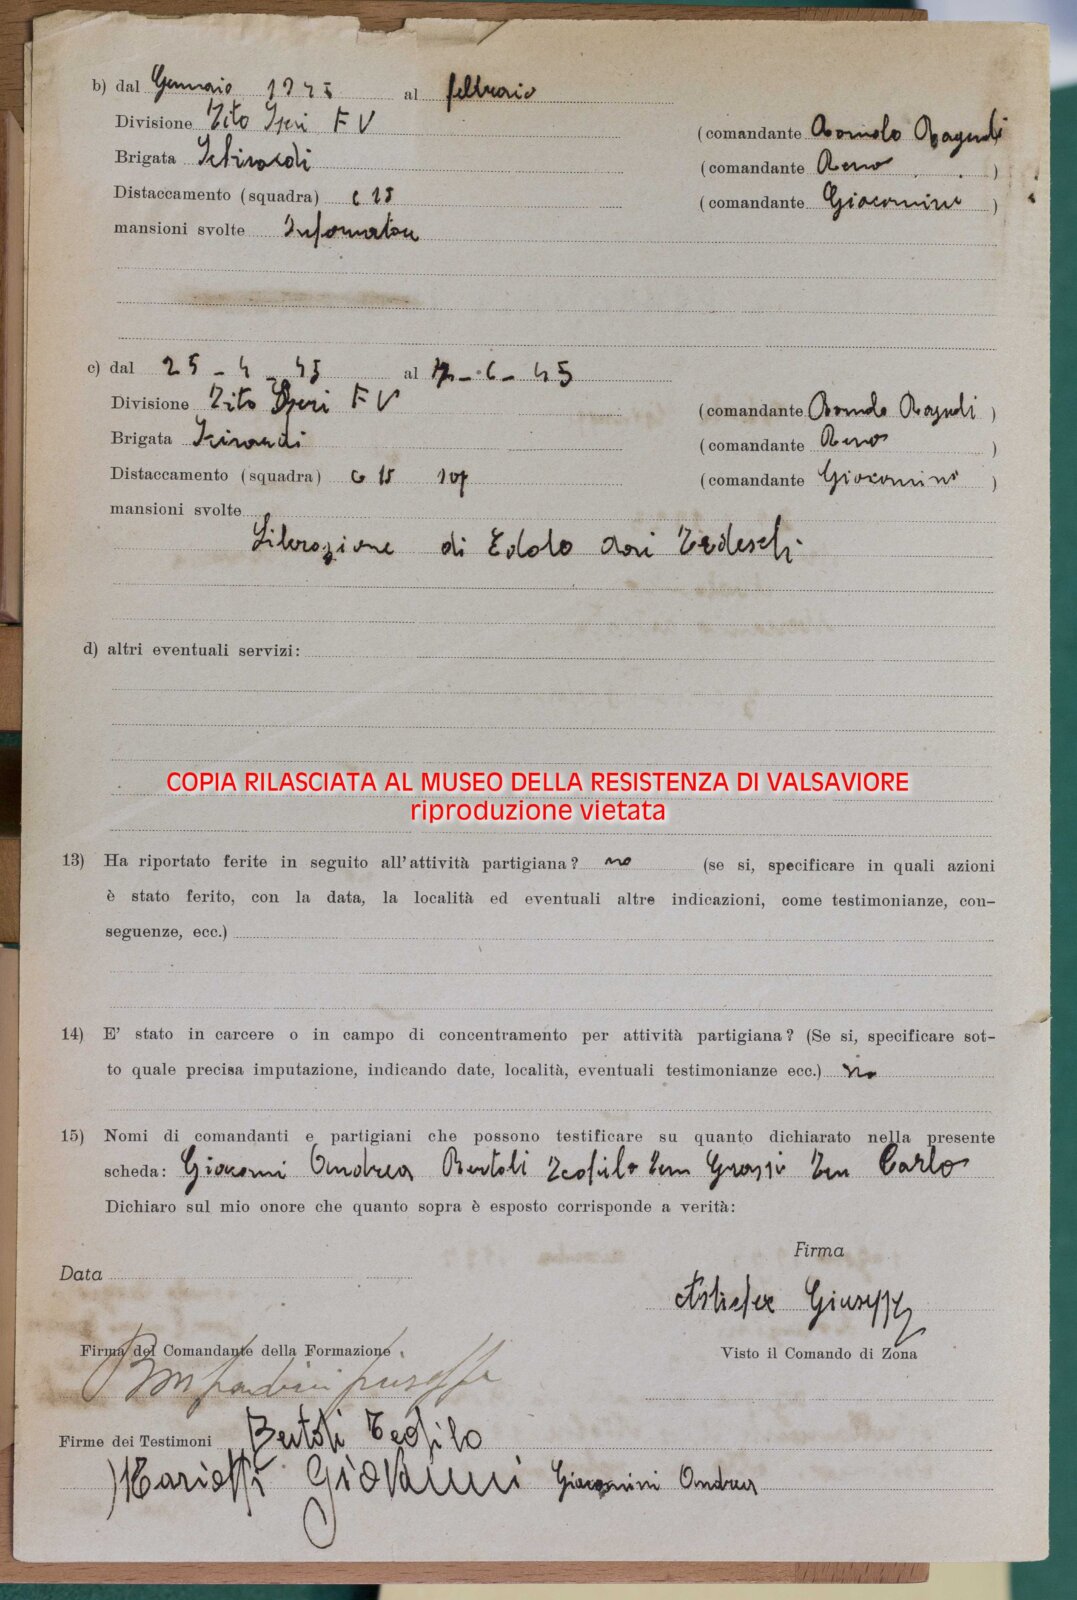 b) dal Gennaio 1945 al febbraio
Divisione Tito Speri F V (comandante Romolo Ragnoli
Brigata Schivardi (comandante Reno )
Distaccamento (squadra) c 15 (comandante Giacomini )
mansioni svolte Informatore
c) dal 25 - 4 - 45 al - 6 - 45
Divisione Tito Speri F V (comandante Romolo Ragnoli )
Brigata (comandante Reno )
Distaccamento (squadra) c 15 (comandante Giacomini )
mansioni svolte
Liberazione di Edolo dai Tedeschi
d) altri eventuali servizi:
COPIA RILASCIATA AL MUSEO DELLA RESISTENZA DI VALSAVIORE
riproduzione vietata
13) Ha riportato ferite in seguito all'attività partigiana? no (se si, specificare in quali azioni
è stato ferito, con la data, la località ed eventuali altre indicazioni, come testimonianze, con-
seguenze, ecc.)
14) E' stato in carcere o in campo di concentramento per attività partigiana? (Se si, specificare sot-
to quale precisa imputazione, indicando date, località, eventuali testimonianze ecc.) no
15) Nomi di comandanti e partigiani che possono testificare su quanto dichiarato nella presente
scheda: Giacomi Andrea Bertoli Teofilo Ten Grassi Ten Carlo
Dichiaro sul mio onore che quanto sopra è esposto corrisponde a verità:
Firma
Data
Giuseppe
Firma del Comandante della Formazione Visto il Comando di Zona
Firme dei Testimoni Bertoli Teofilo
Mariotti Giovanni Giacomini Andrea